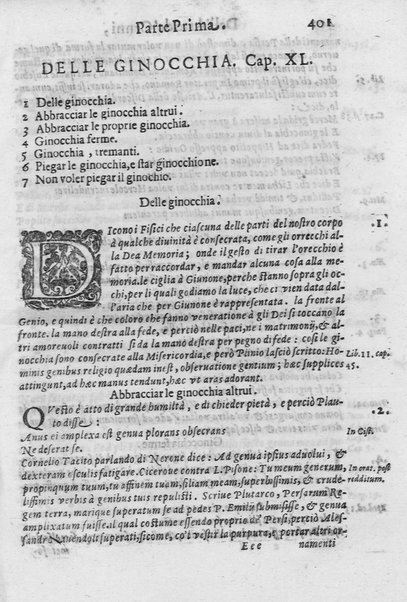 Parte Prima. 401
DELLE GINOCCHIA. Cap. XL.
1 Delle ginocchia.
2 Abbracciar le ginocchia altrui.
3 Abbracciar le proprie ginocchia.
4 Ginocchia ferme.
5 Ginocchia, tremanti.
6 Piegar le ginocchia, e star ginocchione.
7 Non voler piegar il ginochio.
Delle ginocchia.
DIcono i Fisici che ciascuna delle parti del nostro corpo .1.
à qualche divinità è consecrata, come gli orrecchi al-
la Dea Memoria; onde il gesto di tirar l'orecchio è
fatto per raccordar, e mandar alcuna cosa alla me-
moria. le ciglia à Giunone, perche stanno sopra gli oc-
chi, per li quali godiamo la luce, che ci vien data dal-
l'aria che per Giunone è rappresentata. la fronte al
Genio, e quindi è che coloro che fanno veneratione à gli Dei si toccano la
fronte. la mano destra alla fede, e perciò nelle paci, ne i matrimonÿ, & al-
tri amorevoli contratti si dà la mano destra per pegno di fede: così le gi-
nocchia sono consecrate alla Misericordia, e però Plinio lasciò scritto: Ho- Lib. 11. cap.
minis genibus religio quædam inest, observatione gentium; hæc supplices 45.
attingunt, ad hæc manus tendunt, hæc vt aras adorant.
Abbracciar le ginocchia altrui.
QVesto è atto di grande humiltà, e di chieder pietà, e perciò Plau- .2.
to disse:
Anus ei amplexa est genua plorans obsecrans In Cist.
Ne deserat se.
Cornelio Tacito parlando di Nerone dice: Ad genua ipsius aduolui, &
dexteram esculis fatigare. Cicerone contra L. Pisone: Tu meum generum, In orat. post
propinquum tuum, tu affinem tuam, filiam meam, superbissimis, & crude- redditum.
lissimis verbis à genibus tuis repulisti. Scriue Plutarco, Persarum Re-
gem terra, marique superatum se ad pedes P. Emilÿ submisisse, & genua
amplixatum fuisse. il qual costume essendo proprio de' Persi, perciò Ales-
sandro hauendoli superati, sicome, co'l vestir la purpura, e portar altri or-
Eee namenti